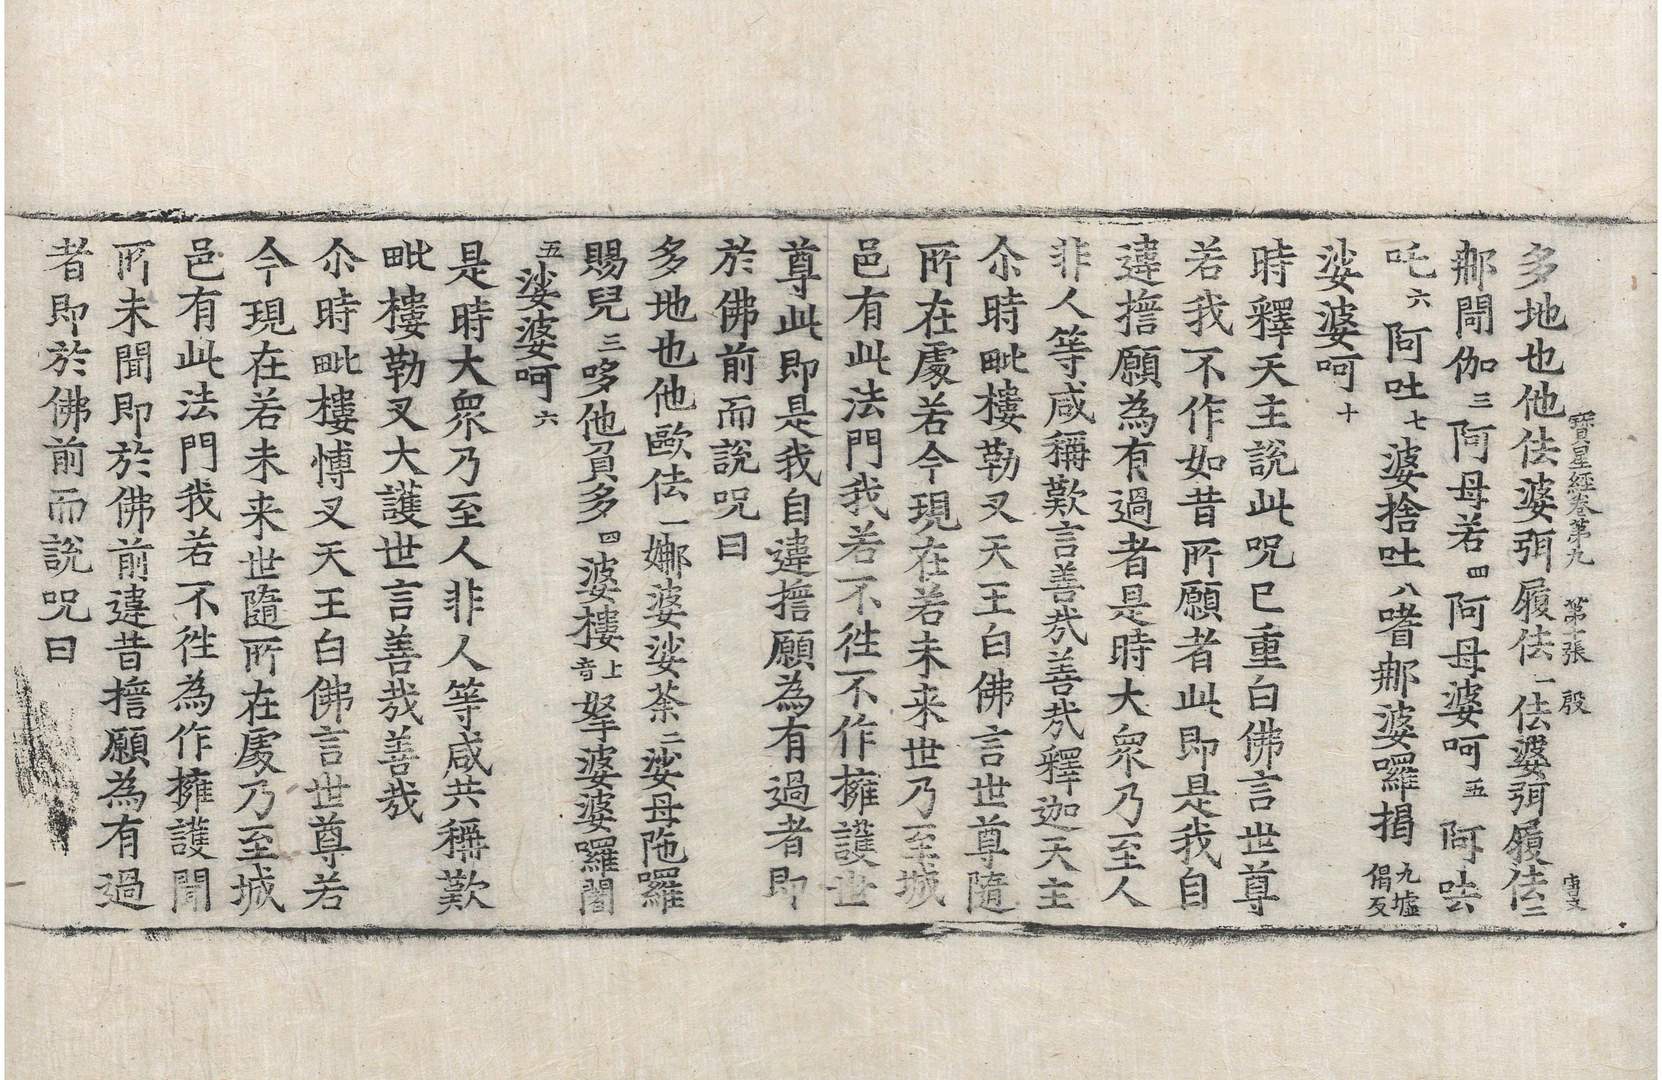 寶星經卷第九 第十張 殷
多地也他佉婆弭履佉一佉婆弭履佉二
郍閊伽三阿母若四阿母婆呵五阿呿
吒六阿吐七婆捨吐八嗜郍婆囉揭九墟偈反
娑婆呵十
時釋天主說此呪已重白佛言世尊
若我不作如昔所願者此即是我自
違擔願為有過者是時大衆乃至人
非人等咸稱歎言善㢤善㢤釋迦天主
尒時毗樓勒叉天王白佛言世尊隨
所在處若今現在若未来世乃至城
邑有此法門我若不徃不作擁護世
尊此即是我自違擔願為有過者即
於佛前而說呪曰
多地也他歐佉一娜婆娑荼二娑母陁囉
賜兒三哆他負多四婆樓上音拏婆婆囉闇
五娑婆呵六
是時大衆乃至人非人等咸共稱歎
毗樓勒叉大護世言善哉善哉
尒時毗樓博叉天王白佛言世尊若
今現在若未来世隨所在處乃至城
邑有此法門我若不徃為作擁護聞
所未聞即於佛前違昔擔願為有過
者即於佛前而說呪曰